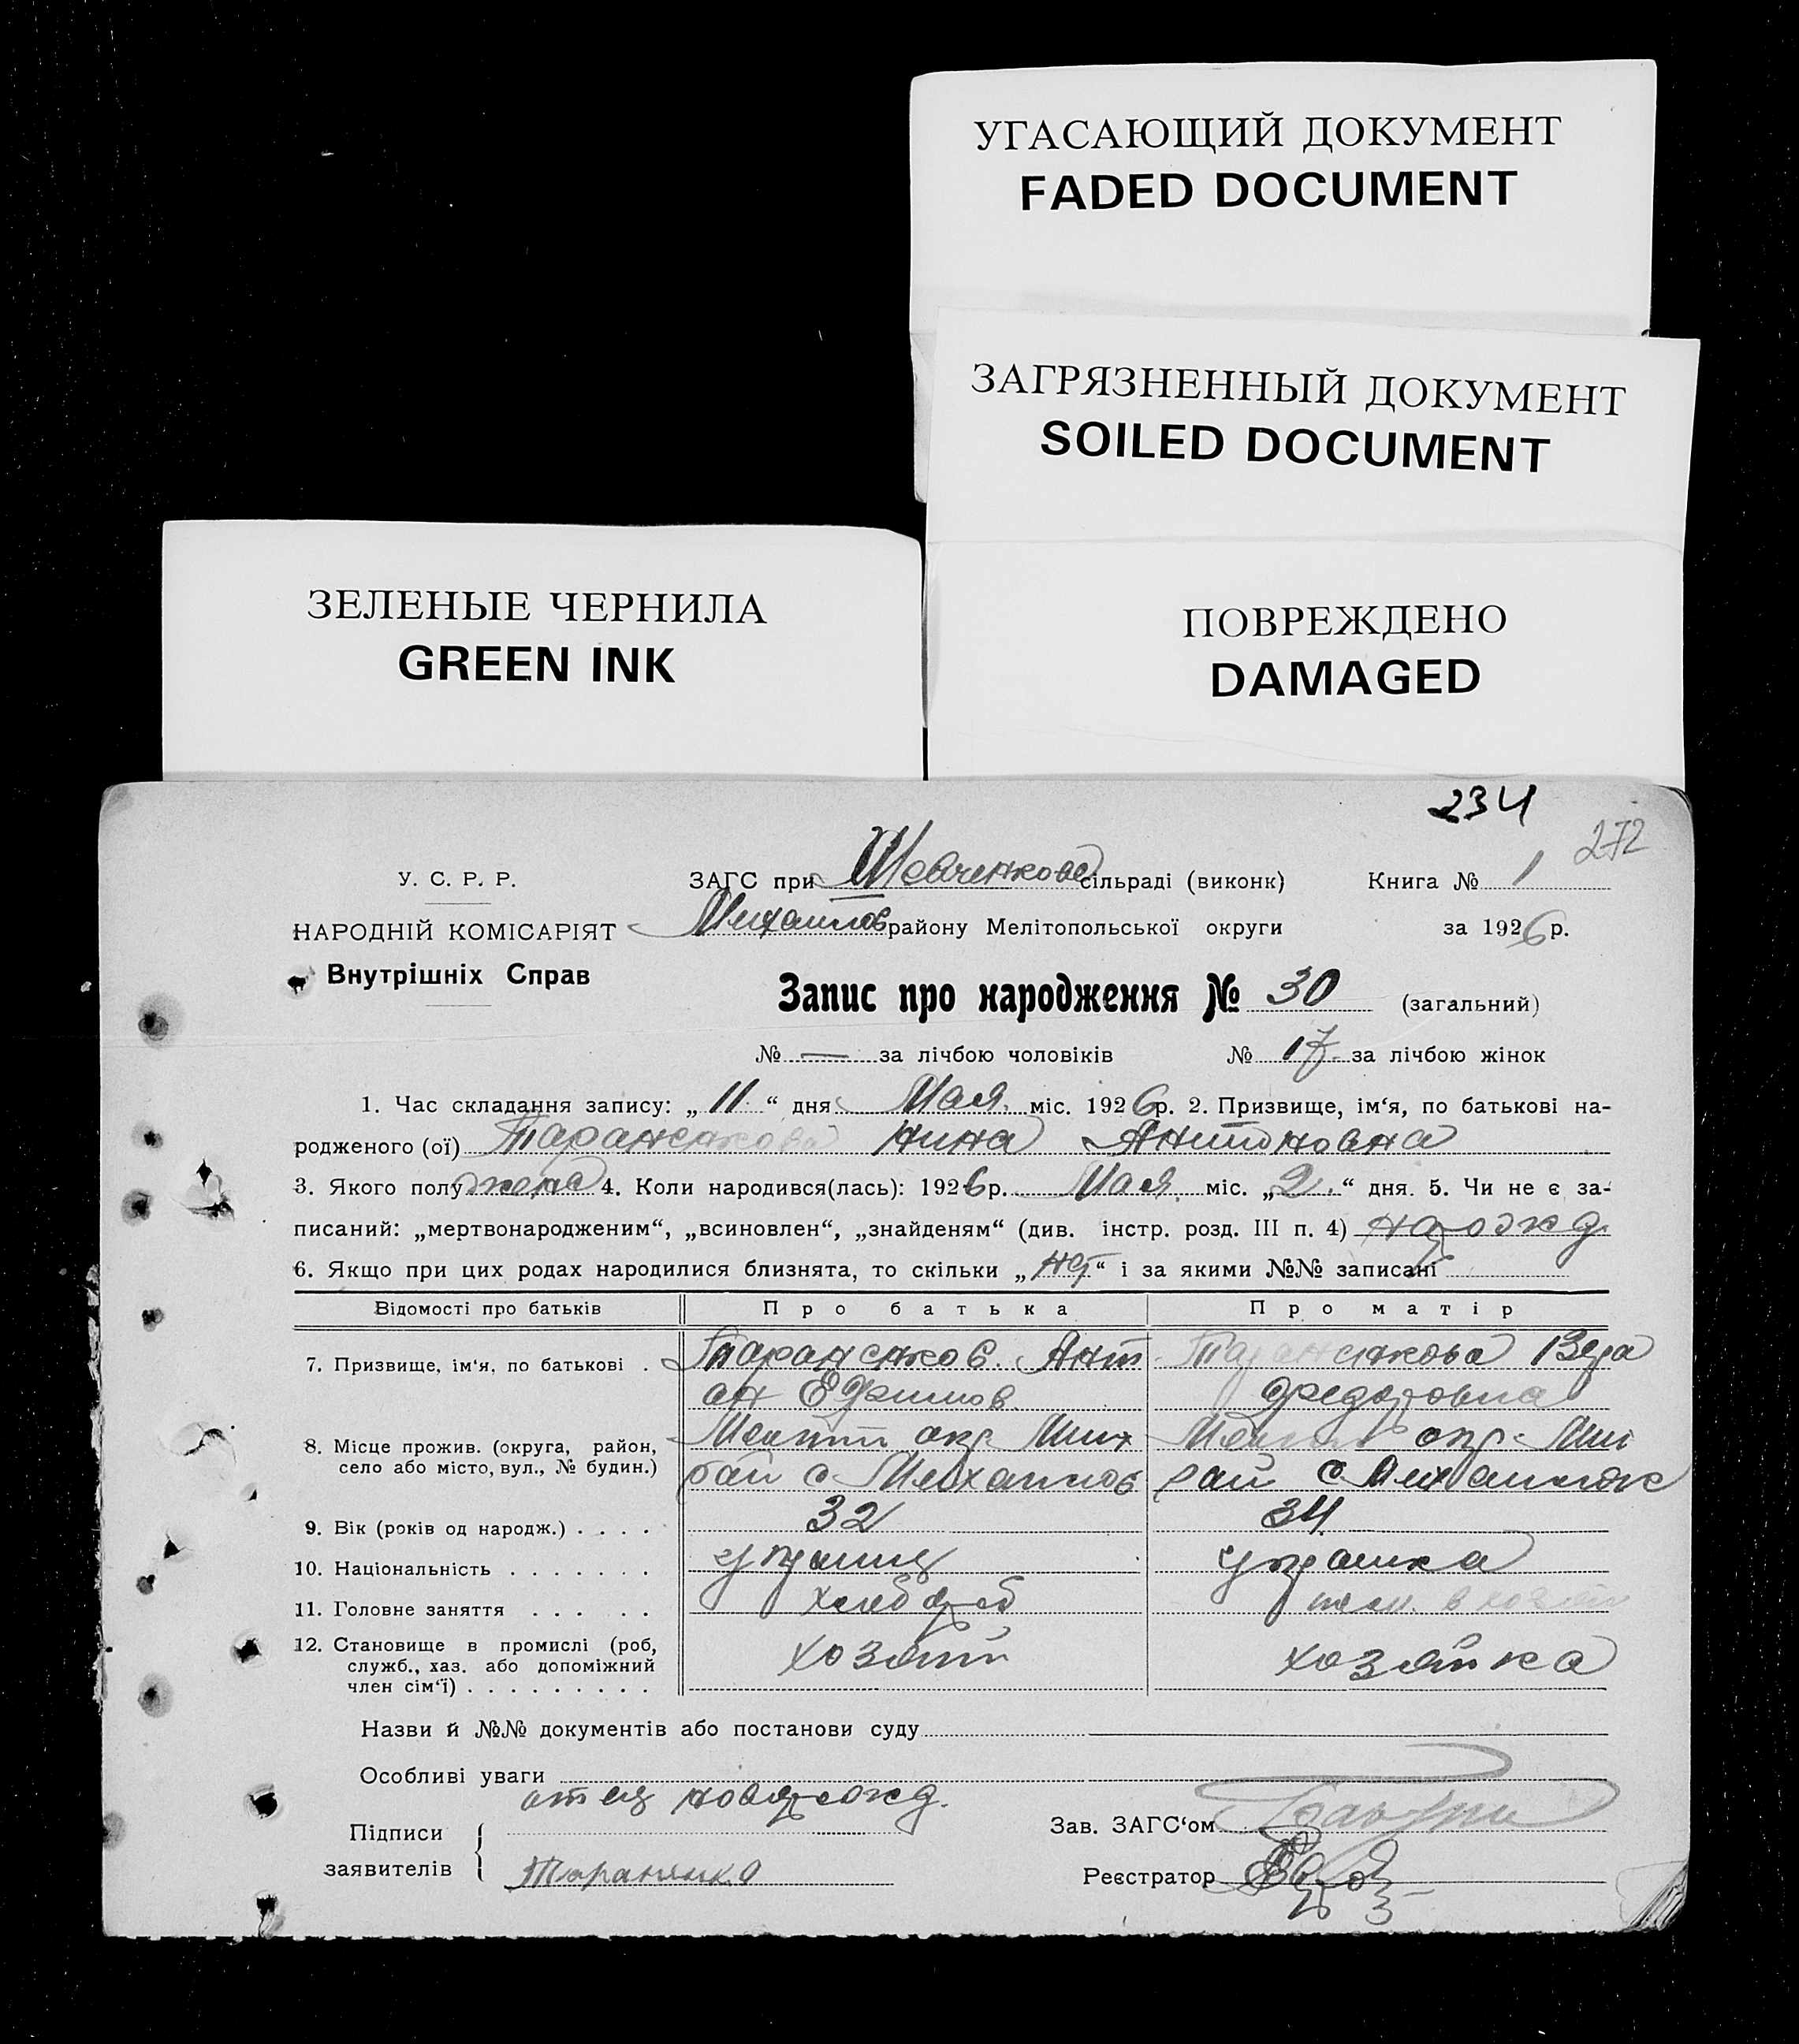 УГАСАЮЩИЙ ДОКУМЕНТ
FADED DOCUMENT
ЗАГРЯЗНЕННЫЙ ДОКУМЕНТ
SOILED DOCUMENT
ЗЕЛЕНЫЕ ЧЕРНИЛА
GREEN INK
ПОВРЕЖДЕНО
DAMAGED
234
272
У. С. Р. Р.
ЗАГС при Шевченков сільраді (виконк) Книга № 1
НАРОДНІЙ КОМІСАРІЯТ
Михайлов району Мелітопольської округи за 1926 р.
Внутрішніх Справ
Запис про народження № 30 (загальний)
№ — за лічбою чоловіків № 17 за лічбою жінок
1. Час складання запису: „11“ дня Мая міс. 1926 р. 2. Призвище, ім‘я, по батькові на-
родженого (ої) Тараненкова Нина Антоновна
3. Якого полу жена 4. Коли народився(лась): 1926 р. Мая міс. „2“ дня. 5. Чи не є за-
писаний: „мертвонародженим“, „всиновлен“, „знайденям“ (див. інстр. розд. III п. 4)
6. Якщо при цих родах народилися близнята, то скільки „нет“ і за якими №№ записані
Відомості про батьків Про батька Про матір
7. Призвище, ім‘я, по батькові . Тараненков Ант Тараненкова Вера
он Ефимов Федоровна
8. Місце прожив. (округа, район, Мелит окр Мих окр. Мих
село або місто, вул., № будин.) рай с Михайлов рай с
9. Вік (років од народж.) . . . . 32 34
10. Національність . . . . . . . украинец украинка
11. Головне заняття . . . . . хлебороб
12. Становище в промислі (роб, хозяин хозяйка
служб., хаз. або допоміжний
член сім‘ї) . . . . . . . . .
Назви й №№ документів або постанови суду
Особливі уваги
отец новорожд.
Підписи
заявителів Тараненко
Зав. ЗАГС‘ом
Реєстратор